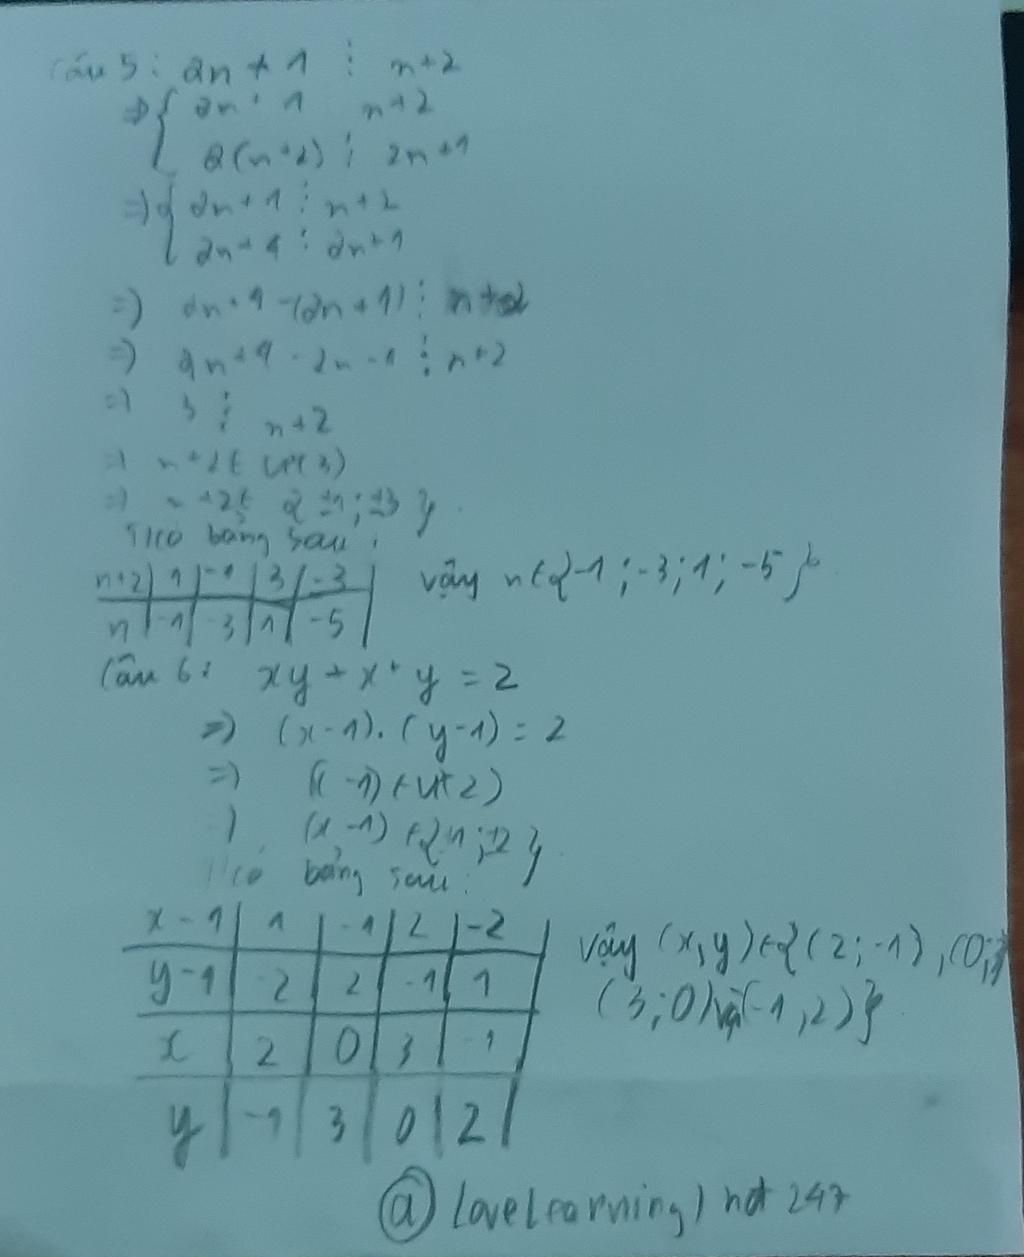 Câu 5: 2n + 1 ⋮ n+2
=> { 2n + 1 n+2
2(n+2) ⋮ 2n+1
=> { 2n+1 ⋮ n+2
2n+4 ⋮ 2n+1
=) 2n+4 -(2n+1) ⋮ n+2
=) 2n+4 - 2n - 1 ⋮ n+2
=) 3 ⋮ n+2
=) n+2 ∈ Ư(3)
=) n+2 ∈ {±1; ±3}
Ta có bảng sau:
n+2 | 1 | -1 | 3 | -3
n | -1 | -3 | 1 | -5
Vậy n ∈ {-1; -3; 1; -5}
Câu 6: xy + x + y = 2
=) (x-1).(y-1) = 2
=) ( -1) ∈ Ư( 2)
) (x-1) ∈ {±1; ±2}
có bảng sau:
x-1 | 1 | -1 | 2 | -2
y-1 | -2 | 2 | -1 | 1
x | 2 | 0 | 3 | -1
y | -1 | 3 | 0 | 2
Vậy (x,y) ∈ {(2; -1), (0;3)
(3;0) và (-1,2)}
@ Lovelearning) not 247